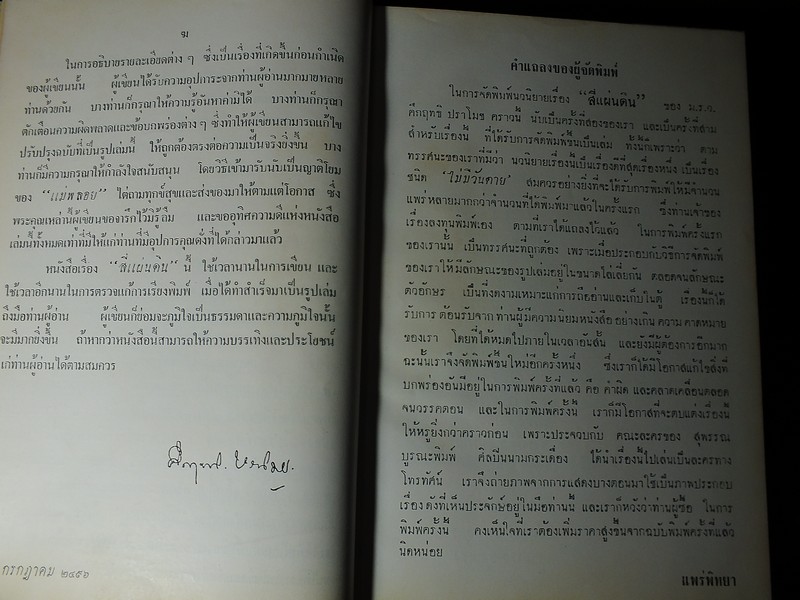 ฆ
ในการอธิบายรายละเอียดต่าง ๆ ซึ่งเป็นเรื่องที่เกิดขึ้นก่อนกำเนิด
ของผู้เขียนนั้น ผู้เขียนได้รับความอุปการะจากท่านผู้อ่านมากมายหลาย
ท่านด้วยกัน บางท่านก็กรุณาให้ความรู้อันหาค่ามิได้ บางท่านก็กรุณา
ตักเตือนความผิดพลาดและข้อบกพร่องต่าง ๆ ซึ่งทำให้ผู้เขียนสามารถแก้ไข
ปรับปรุงฉบับที่เป็นรูปเล่มนี้ ให้ถูกต้องตรงต่อความเป็นจริงยิ่งขึ้น บาง
ท่านก็มีความกรุณาให้กำลังใจสนับสนุน โดยวิธีเข้ามารับนับเป็นญาติโยม
ของ "แม่พลอย" ไต่ถามทุกข์สุขและส่งของมาให้ตามแต่โอกาส ซึ่ง
พระคุณเหล่านี้ผู้เขียนขอจารึกไว้มิรู้ลืม และขออุทิศความดีแห่งหนังสือ
เล่มนี้ทั้งหมดเท่าที่มีให้แก่ท่านที่มีอุปการคุณดั่งที่ได้กล่าวมาแล้ว
หนังสือเรื่อง "สี่แผ่นดิน" นี้ ใช้เวลานานในการเขียน และ
ใช้เวลาอีกนานในการตรวจแก้การเรียงพิมพ์ เมื่อได้ทำสำเร็จมาเป็นรูปเล่ม
ถึงมือท่านผู้อ่าน ผู้เขียนก็ย่อมจะภูมิใจเป็นธรรมดาและความภูมิใจนั้น
จะมีมากยิ่งขึ้น ถ้าหากว่าหนังสือนี้สามารถให้ความบรรเทิงและประโยชน์
แก่ท่านผู้อ่านได้ตามสมควร
คึกฤทธิ์ ปราโมช.
กรกฎาคม ๒๔๙๖
คำแถลงของผู้จัดพิมพ์
ในการจัดพิมพ์นวนิยายเรื่อง "สี่แผ่นดิน" ของ ม.ร.ว.
คึกฤทธิ์ ปราโมช คราวนี้ นับเป็นครั้งที่สองของเรา และเป็นครั้งที่สาม
สำหรับเรื่องนี้ ที่ได้รับการจัดพิมพ์ขึ้นเป็นเล่ม ทั้งนี้ก็เพราะว่า ตาม
ทรรศนะของเราที่มีว่า นวนิยายเรื่องนี้เป็นเรื่องดีที่สุดเรื่องหนึ่ง เป็นเรื่อง
ชนิด "ไม่มีวันตาย" สมควรอย่างยิ่งที่จะได้รับการพิมพ์ให้มีจำนวน
แพร่หลายมากกว่าจำนวนที่ได้พิมพ์มาแล้วในครั้งแรก ซึ่งท่านเจ้าของ
เรื่องลงทุนพิมพ์เอง ตามที่เราได้แถลงไว้แล้ว ในการพิมพ์ครั้งแรก
ของเรานั้น เป็นทรรศนะที่ถูกต้อง เพราะเมื่อประกอบกับวิธีการจัดพิมพ์
ของเราให้มีลักษณะของรูปเล่มอยู่ในขนาดไล่เลี่ยกัน ตลอดจนลักษณะ
ตัวอักษร เป็นที่งดงามเหมาะแก่การถืออ่านและเก็บในตู้ เรื่องนี้ก็ได้
รับการ ต้อนรับจาก ท่านผู้มีความนิยมหนังสือ อย่างเกิน ความ คาดหมาย
ของเรา โดยที่ได้หมดไปภายในเวลาอันสั้น และยังมีผู้ต้องการอีกมาก
ฉะนั้นเราจึงจัดพิมพ์ขึ้นใหม่อีกครั้งหนึ่ง ซึ่งเราก็ได้มีโอกาสแก้ไขสิ่งที่
บกพร่องอันมีอยู่ในการพิมพ์ครั้งที่แล้ว คือ คำผิด และคลาดเคลื่อนตลอด
จนวรรคตอน และในการพิมพ์ครั้งนี้ เราก็มีโอกาสที่จะตบแต่งเรื่องนี้
ให้หรูยิ่งกว่าคราวก่อน เพราะประจวบกับ คณะละครของ สุพรรณ
บูรณะพิมพ์ ศิลปินนามกระเดื่อง ได้นำเรื่องนี้ไปเล่นเป็นละครทาง
โทรทัศน์ เราจึงถ่ายภาพจากการแสดงบางตอนมาใช้เป็นภาพประกอบ
เรื่อง ดังที่เห็นประจักษ์อยู่ในมือท่านนี้ และเราก็หวังว่าท่านผู้ซื้อ ในการ
พิมพ์ครั้งนี้ คงเห็นใจที่เราต้องเพิ่มราคาสูงขึ้นจากฉบับพิมพ์ครั้งที่แล้ว
นิดหน่อย
แพร่พิทยา